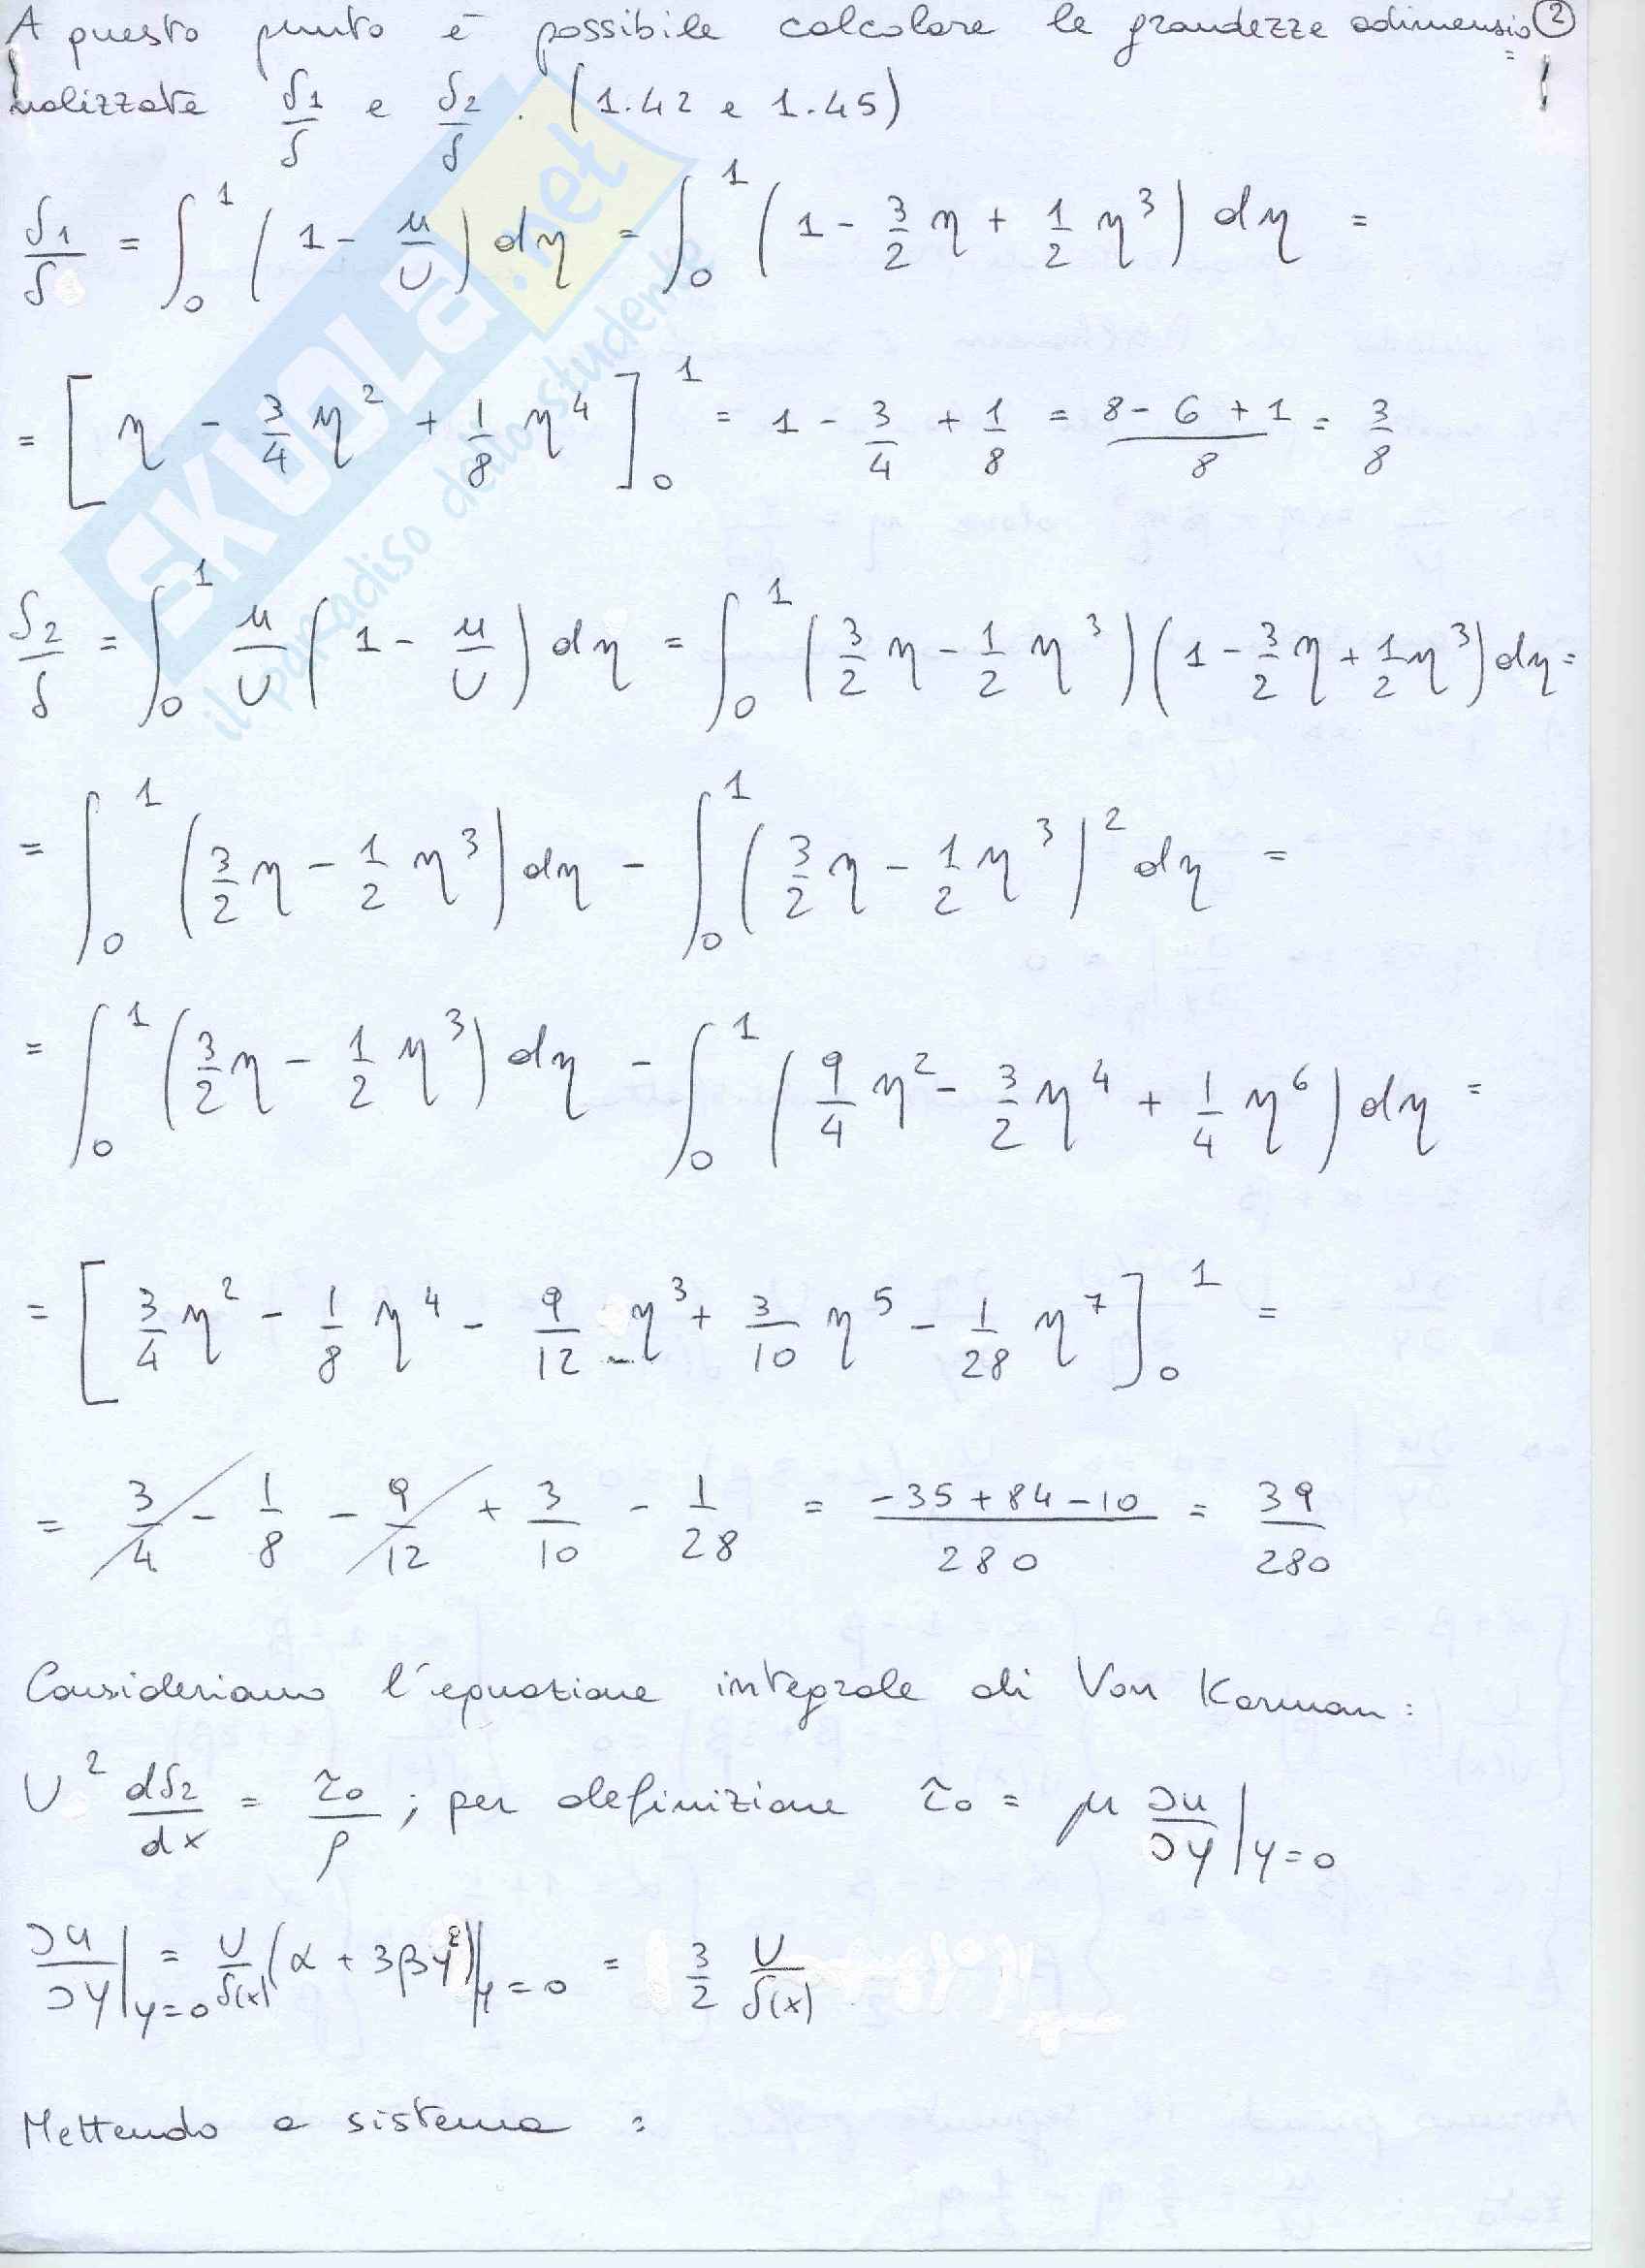 A questo punto è possibile calcolare le grandezze adimensio= ②
nalizzate δ1/δ e δ2/δ . (1.42 e 1.45)
δ1/δ = ∫₀¹ (1 - u/U) dη = ∫₀¹ (1 - 3/2 η + 1/2 η³) dη =
= [η - 3/4 η² + 1/8 η⁴]₀¹ = 1 - 3/4 + 1/8 = (8 - 6 + 1)/8 = 3/8
δ2/δ = ∫₀¹ u/U (1 - u/U) dη = ∫₀¹ (3/2 η - 1/2 η³)(1 - 3/2 η + 1/2 η³) dη =
= ∫₀¹ (3/2 η - 1/2 η³) dη - ∫₀¹ (3/2 η - 1/2 η³)² dη =
= ∫₀¹ (3/2 η - 1/2 η³) dη - ∫₀¹ (9/4 η² - 3/2 η⁴ + 1/4 η⁶) dη =
= [3/4 η² - 1/8 η⁴ - 9/12 η³ + 3/10 η⁵ - 1/28 η⁷]₀¹ =
= 3/4 - 1/8 - 9/12 + 3/10 - 1/28 = (-35 + 84 - 10)/280 = 39/280
Consideriamo l'equazione integrale di Von Karman :
U² dδ2/dx = τ₀/ρ ; per definizione τ₀ = μ ∂u/∂y|y=0
∂u/∂y|y=0 = U/δ(x) (α + 3βy²)|y=0 = 3/2 U/δ(x)
Mettendo a sistema :
SKUOLA.net
il paradiso dello studente